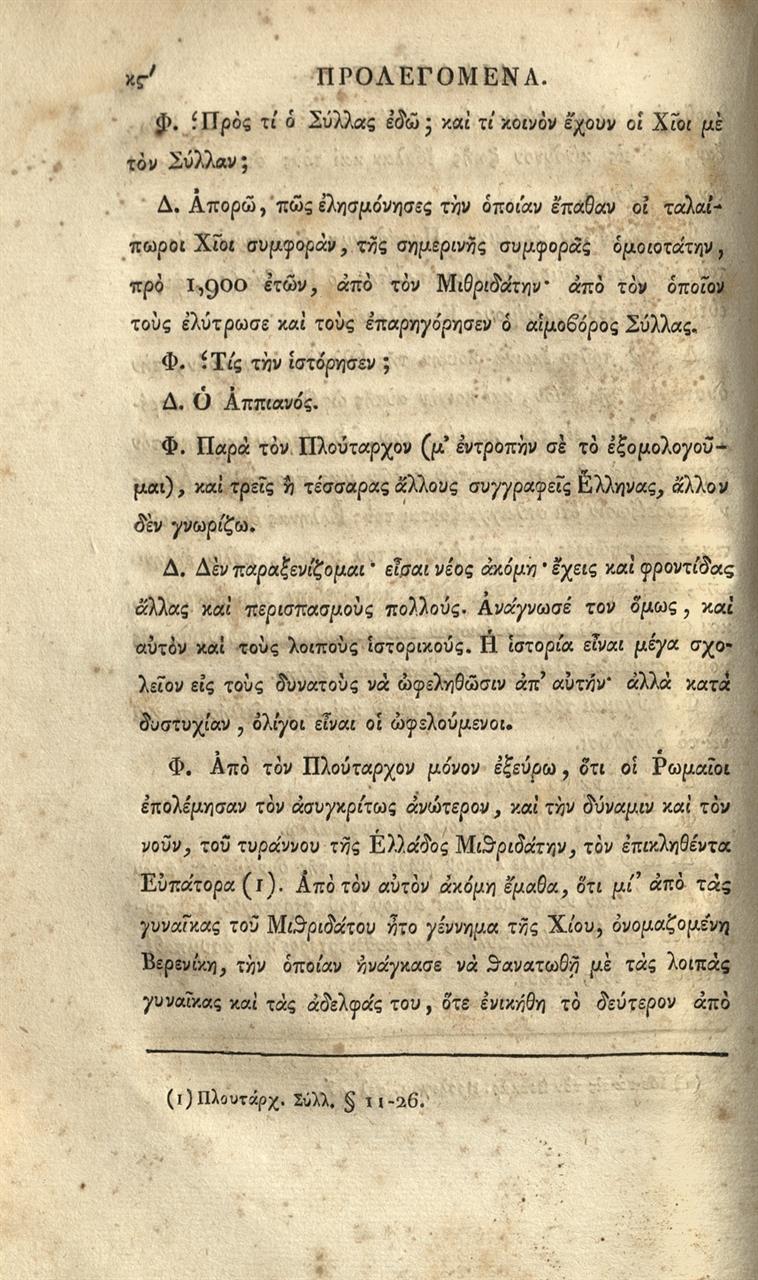 κϛ′ ΠΡΟΛΕΓΟΜΕΝΑ.
Φ. ⸮Πρὸς τί ὁ Σύλλας ἐδῶ; καὶ τί κοινὸν ἔχουν οἱ Χῖοι μὲ
τὸν Σύλλαν;
Δ. Ἀπορῶ, πῶς ἐλησμόνησες τὴν ὁποίαν ἔπαθαν οἱ ταλαί-
πωροι Χῖοι συμφορὰν, τῆς σημερινῆς συμφορᾶς ὁμοιοτάτην,
πρὸ 1,900 ἐτῶν, ἀπὸ τὸν Μιθριδάτην· ἀπὸ τὸν ὁποῖον
τοὺς ἐλύτρωσε καὶ τοὺς ἐπαρηγόρησεν ὁ αἱμοβόρος Σύλλας.
Φ. ⸮Τίς τὴν ἱστόρησεν;
Δ. Ὁ Ἀππιανός.
Φ. Παρὰ τὸν Πλούταρχον (μ' ἐντροπὴν σὲ τὸ ἐξομολογοῦ-
μαι), καὶ τρεῖς ἢ τέσσαρας ἄλλους συγγραφεῖς Ἕλληνας, ἄλλον
δὲν γνωρίζω.
Δ. Δὲν παραξενίζομαι· εἶσαι νέος ἀκόμη· ἔχεις καὶ φροντίδας
ἄλλας καὶ περισπασμοὺς πολλούς. Ἀνάγνωσέ τον ὅμως, καὶ
αὐτὸν καὶ τοὺς λοιποὺς ἱστορικούς. Ἡ ἱστορία εἶναι μέγα σχο-
λεῖον εἰς τοὺς δυνατοὺς νὰ ὠφεληθῶσιν ἀπ' αὐτήν· ἀλλὰ κατὰ
δυστυχίαν, ὀλίγοι εἶναι οἱ ὠφελούμενοι.
Φ. Ἀπὸ τὸν Πλούταρχον μόνον ἐξεύρω, ὅτι οἱ Ῥωμαῖοι
ἐπολέμησαν τὸν ἀσυγκρίτως ἀνώτερον, καὶ τὴν δύναμιν καὶ τὸν
νοῦν, τοῦ τυράννου τῆς Ἑλλάδος Μιθριδάτην, τὸν ἐπικληθέντα
Εὐπάτορα (1). Ἀπὸ τὸν αὐτὸν ἀκόμη ἔμαθα, ὅτι μί' ἀπὸ τὰς
γυναῖκας τοῦ Μιθριδάτου ἦτο γέννημα τῆς Χίου, ὀνομαζομένη
Βερενίκη, τὴν ὁποίαν ἠνάγκασε νὰ θανατωθῇ μὲ τὰς λοιπὰς
γυναῖκας καὶ τὰς ἀδελφάς του, ὅτε ἐνικήθη τὸ δεύτερον ἀπὸ
(1) Πλουτάρχ. Σύλλ. § 11-26.